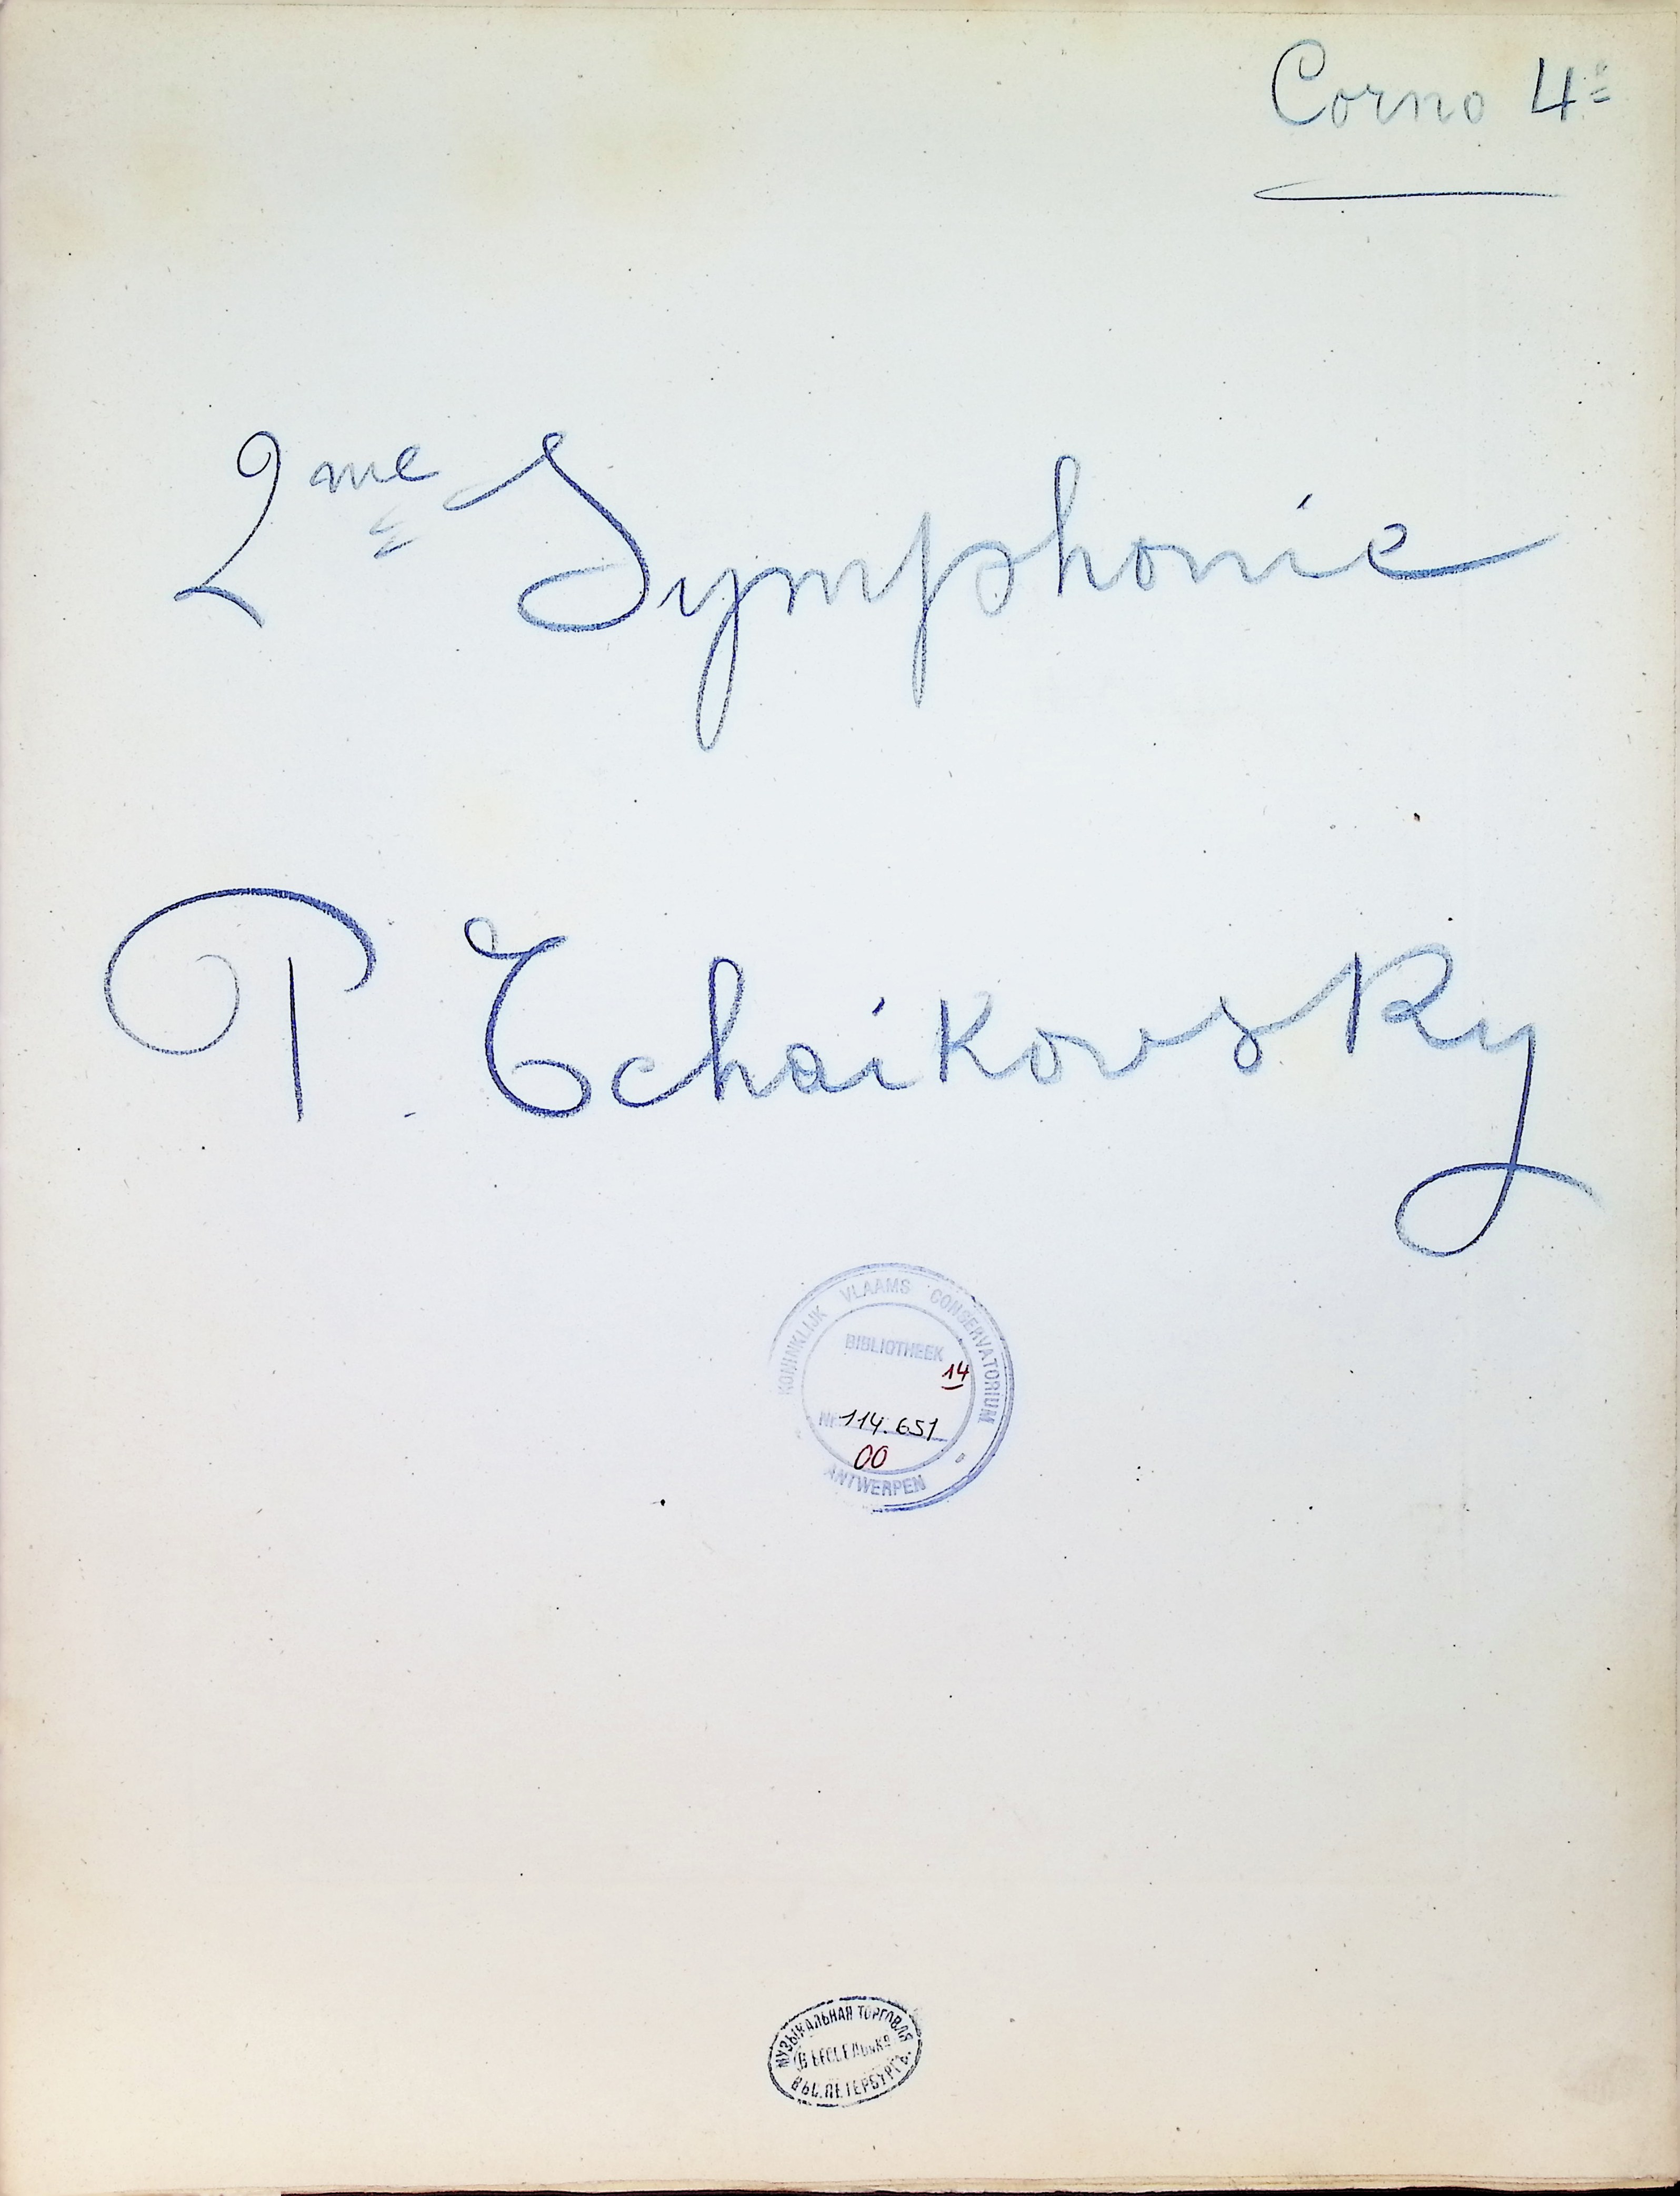 Corno 4º
2me Symphonie
P. Tchaikovsky
KONINKLIJK VLAAMS CONSERVATORIUM
BIBLIOTHEEK
14
Nr. 114.651
00
ANTWERPEN
МУЗЫКАЛЬНАЯ ТОРГОВЛЯ
В. БЕССЕЛЬ и Кº
ВЪ С. ПЕТЕРБУРГѢ.